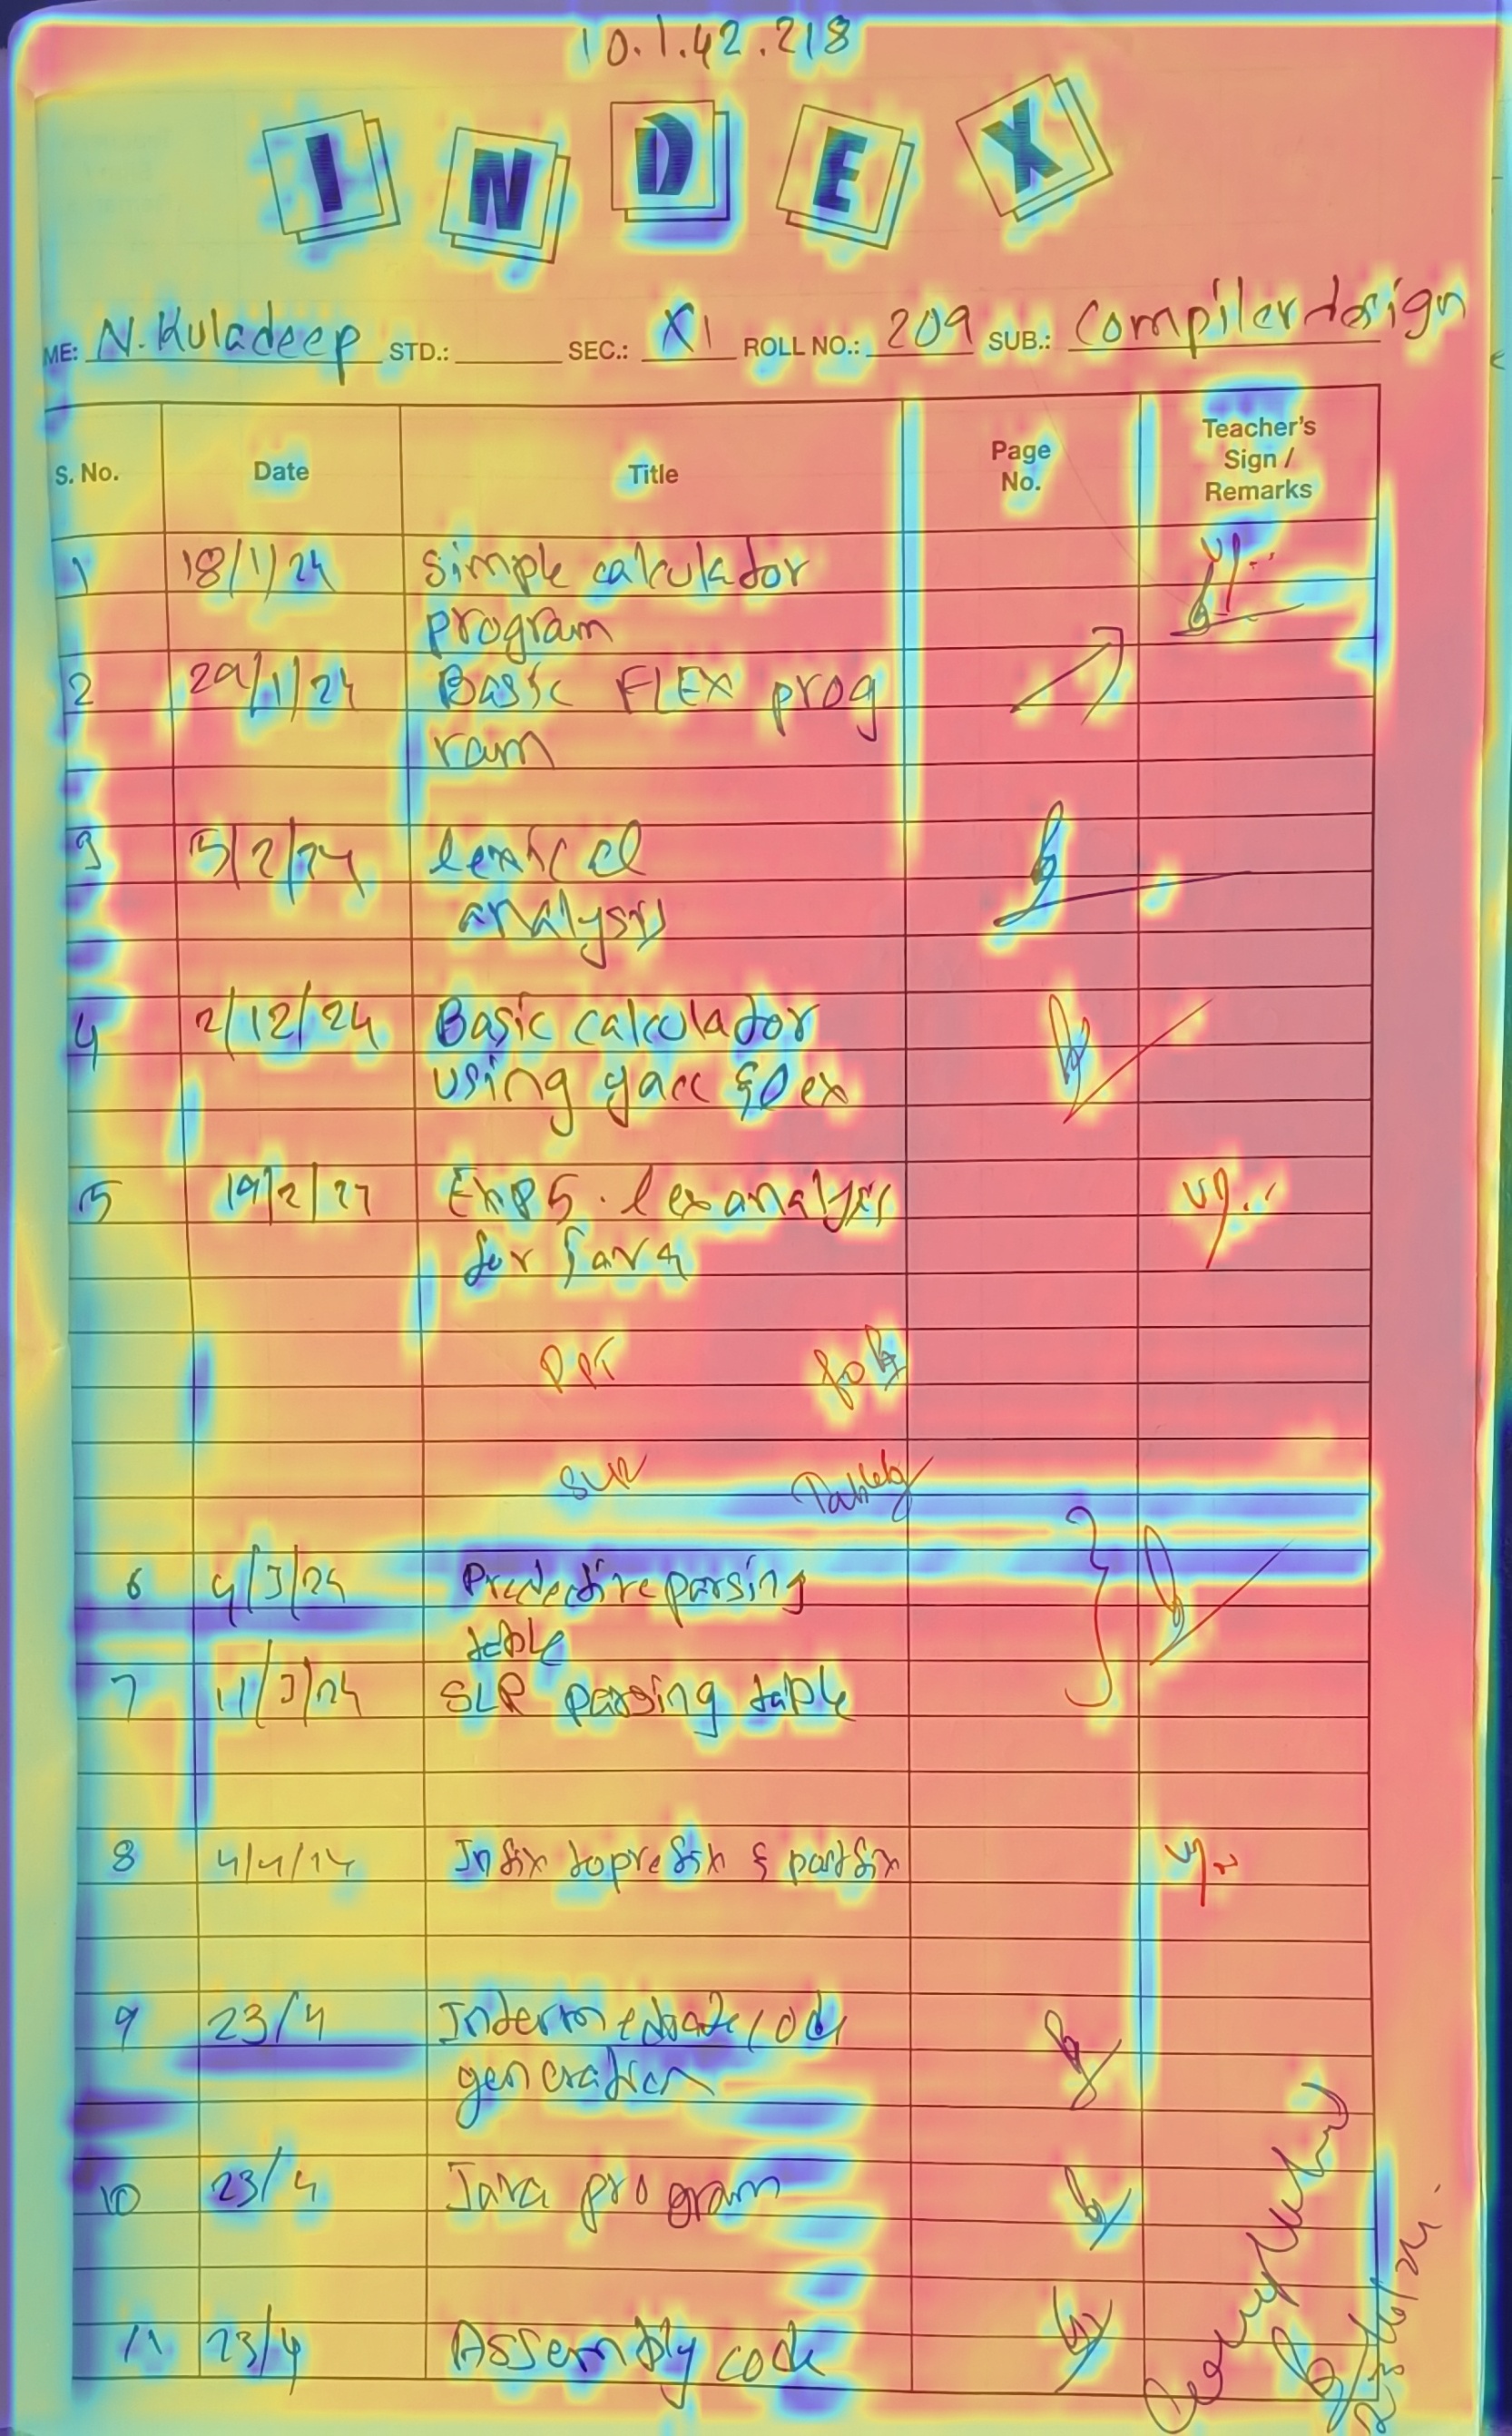 10.1.42.218
INDEX
ME: N. Kuladeep STD.: SEC.: XI ROLL NO.: 209 SUB.: Compiler design
S. No. Date Title Page No. Teacher's Sign / Remarks
1 18/1/24 simple calculator
program
2 29/1/24 Basic FLEX prog
ram
3 5/2/24 lexical
analysis
4 2/12/24 Basic calculator
using yacc & lex
5 19/2/24 Exp 5. lex analysis
for Java
SLR Table
6 4/3/24 Predective parsing
table
7 11/3/24 SLR parsing table
8 4/4/24 Infix to prefix & postfix
9 23/4 Intermediate code
generation
10 23/4 Java program
11 23/4 Assembly code
Completed